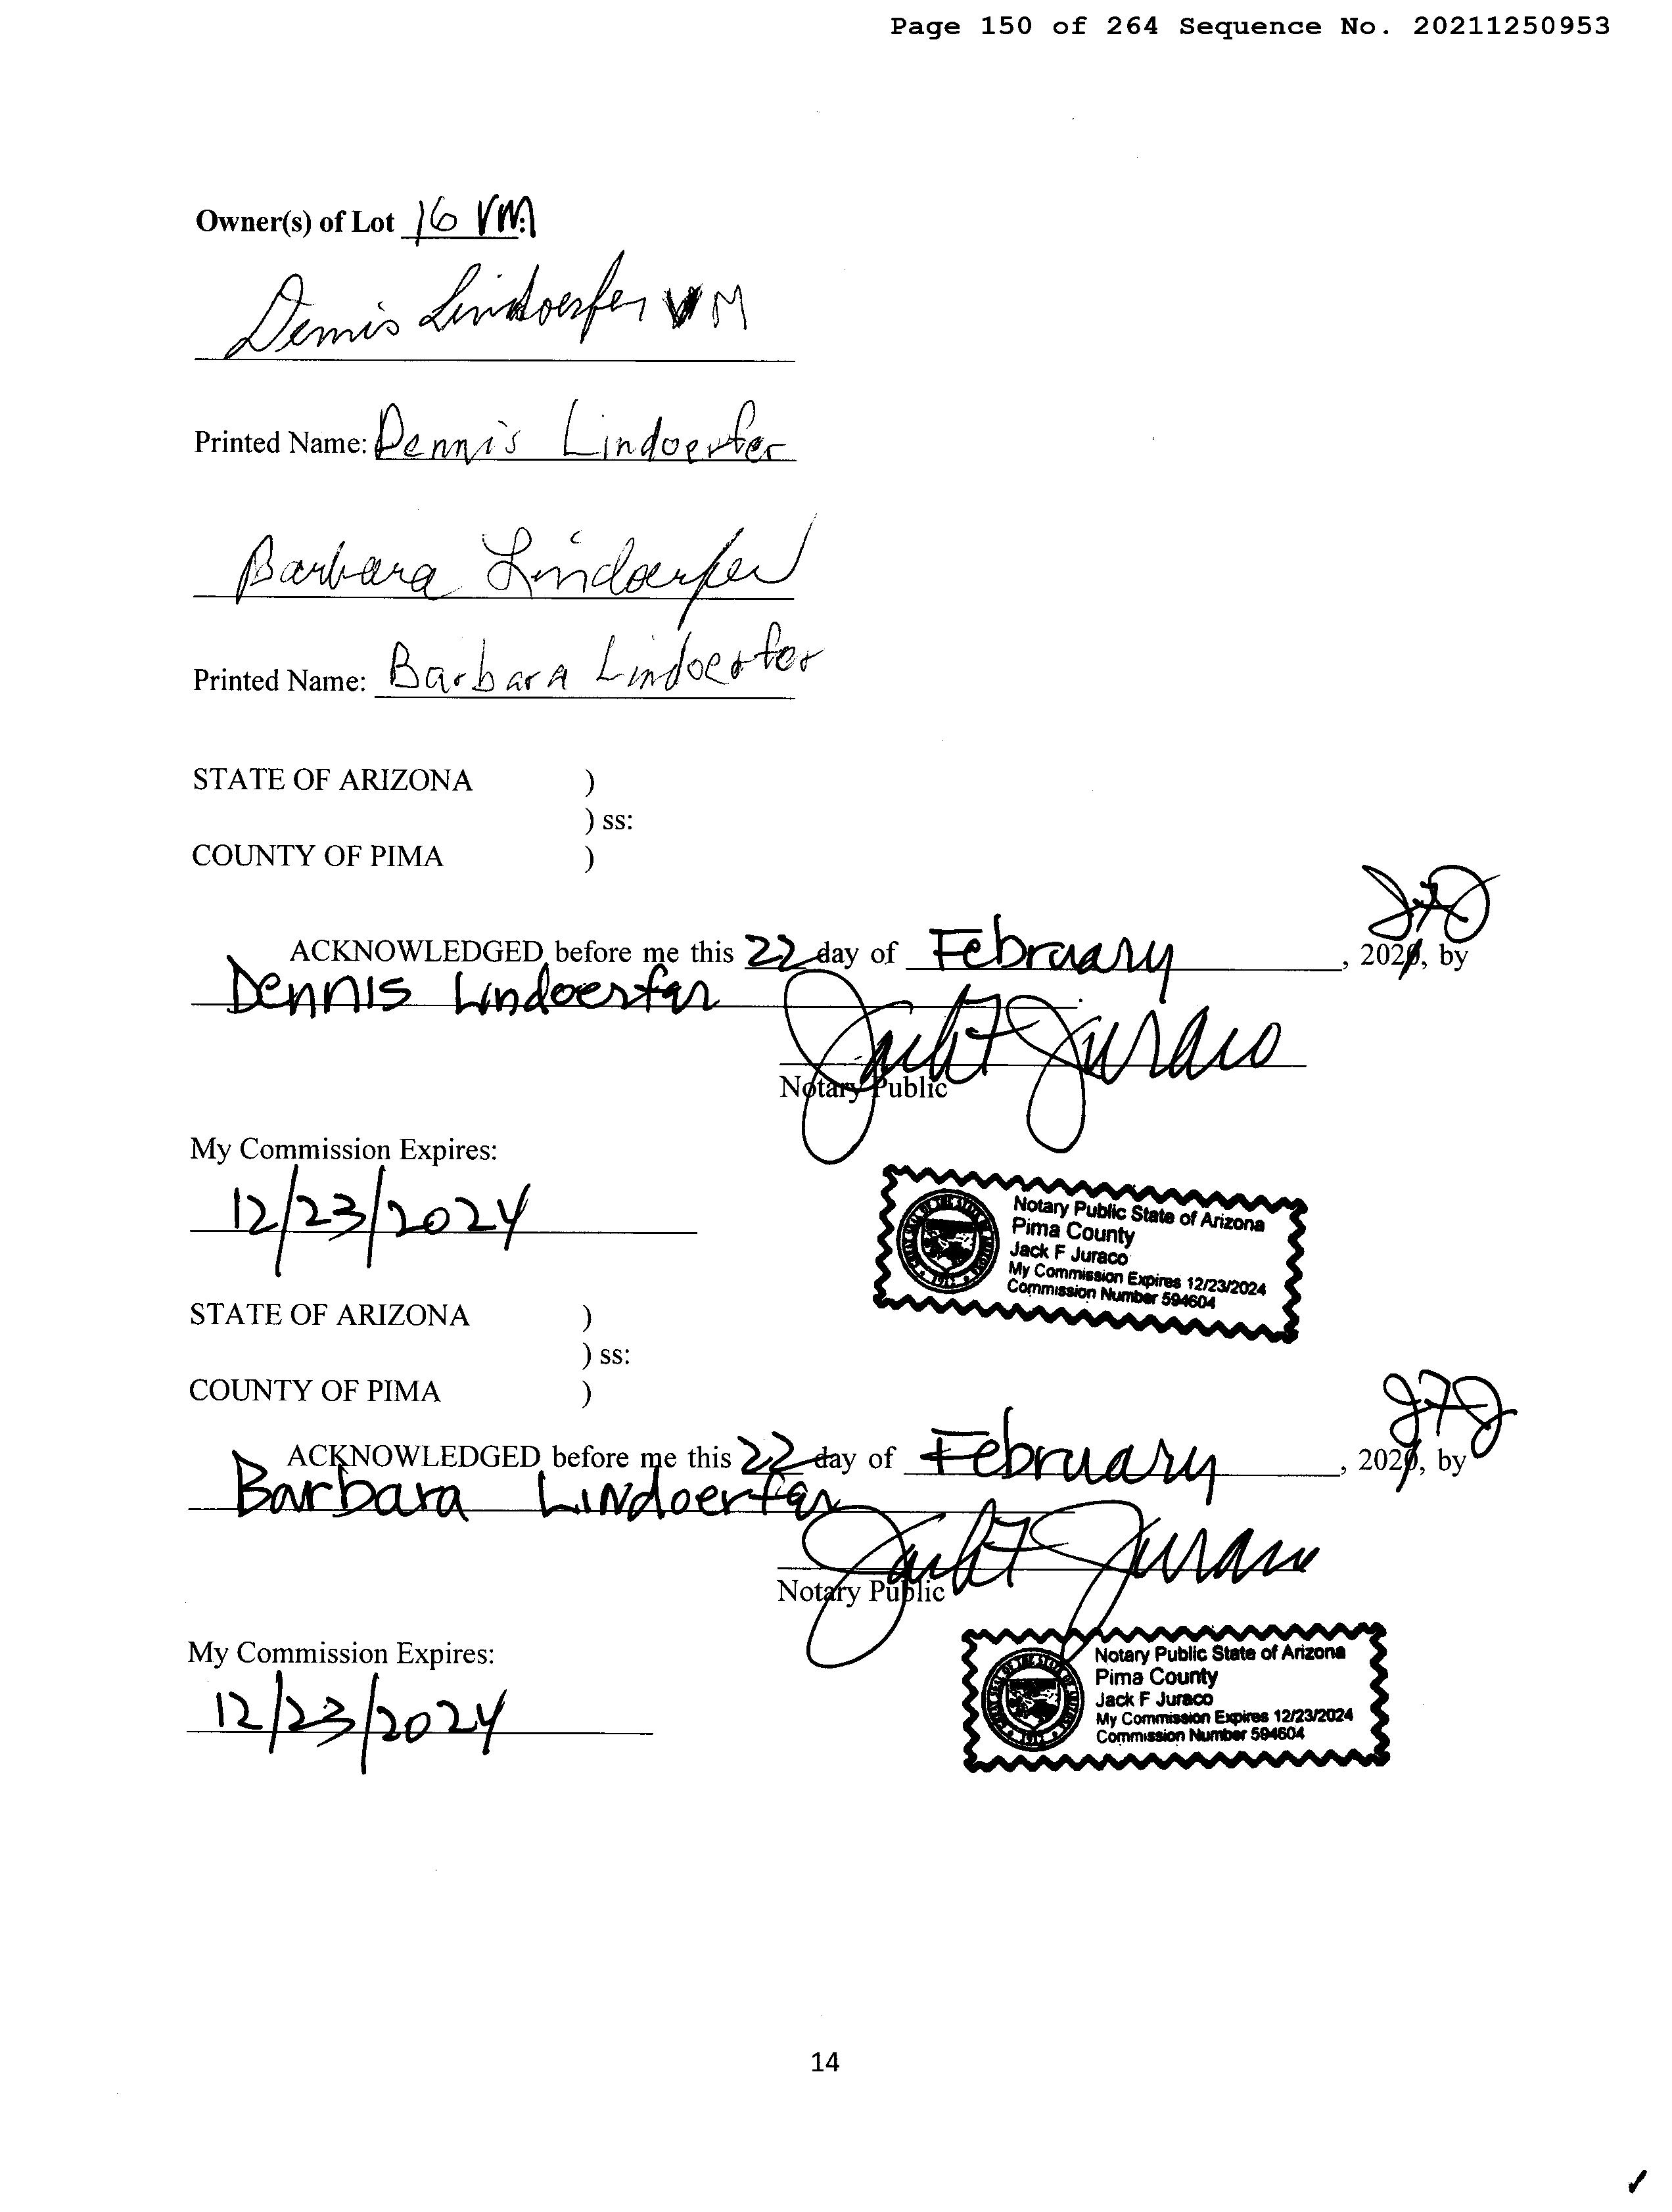 Page 150 of 264 Sequence No. 20211250953
Owner(s) of Lot 16 VM:
Dennis Lindoerfer VM
Printed Name: Dennis Lindoerfer
Barbara Lindoerfer
Printed Name: Barbara Lindoerfer
STATE OF ARIZONA )
) ss:
COUNTY OF PIMA )
JFJ
ACKNOWLEDGED before me this 22 day of February, 2021, by
Dennis Lindoerfer
Jack F Juraco
Notary Public
My Commission Expires:
12/23/2024
Notary Public State of Arizona
Pima County
Jack F Juraco
My Commission Expires 12/23/2024
Commission Number 594604
STATE OF ARIZONA )
) ss:
COUNTY OF PIMA )
JFJ
ACKNOWLEDGED before me this 22 day of February, 2021, by
Barbara Lindoerfer
Jack F Juraco
Notary Public
My Commission Expires:
12/23/2024
Notary Public State of Arizona
Pima County
Jack F Juraco
My Commission Expires 12/23/2024
Commission Number 594604
14